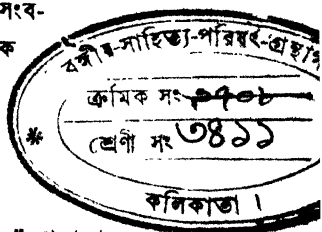 সংব-
ক
বঙ্গীয়-সাহিত্য-পরিষৎ-গ্রন্থাগ
ক্রমিক সং
* শ্রেণী সং ৩৪১১
কলিকাতা ।